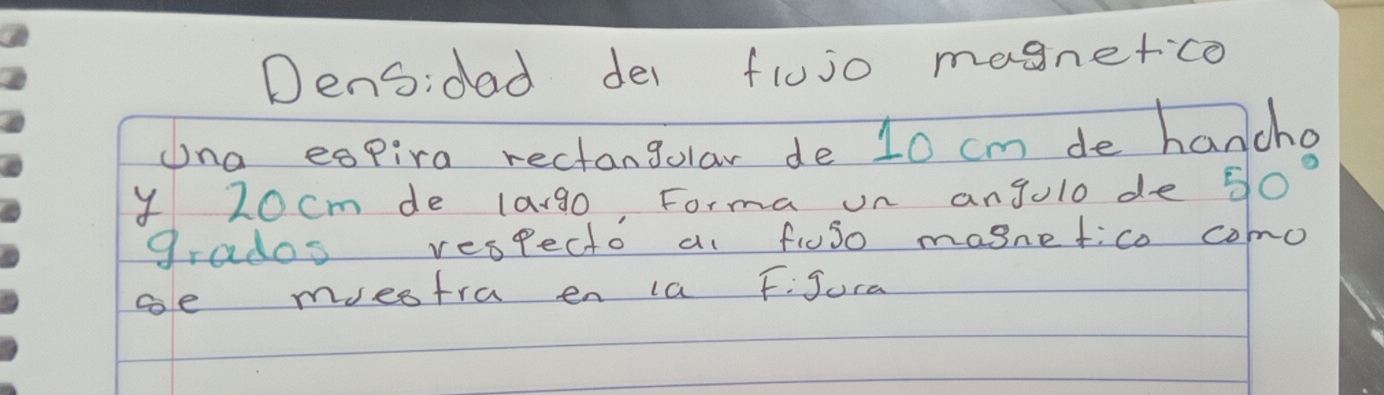 Densidad del flujo magnetico
Una espira rectangular de 10 cm de hancho
y 20cm de largo, Forma un angulo de 50°
grados respecto al flujo magnetico como
se muestra en la Figura